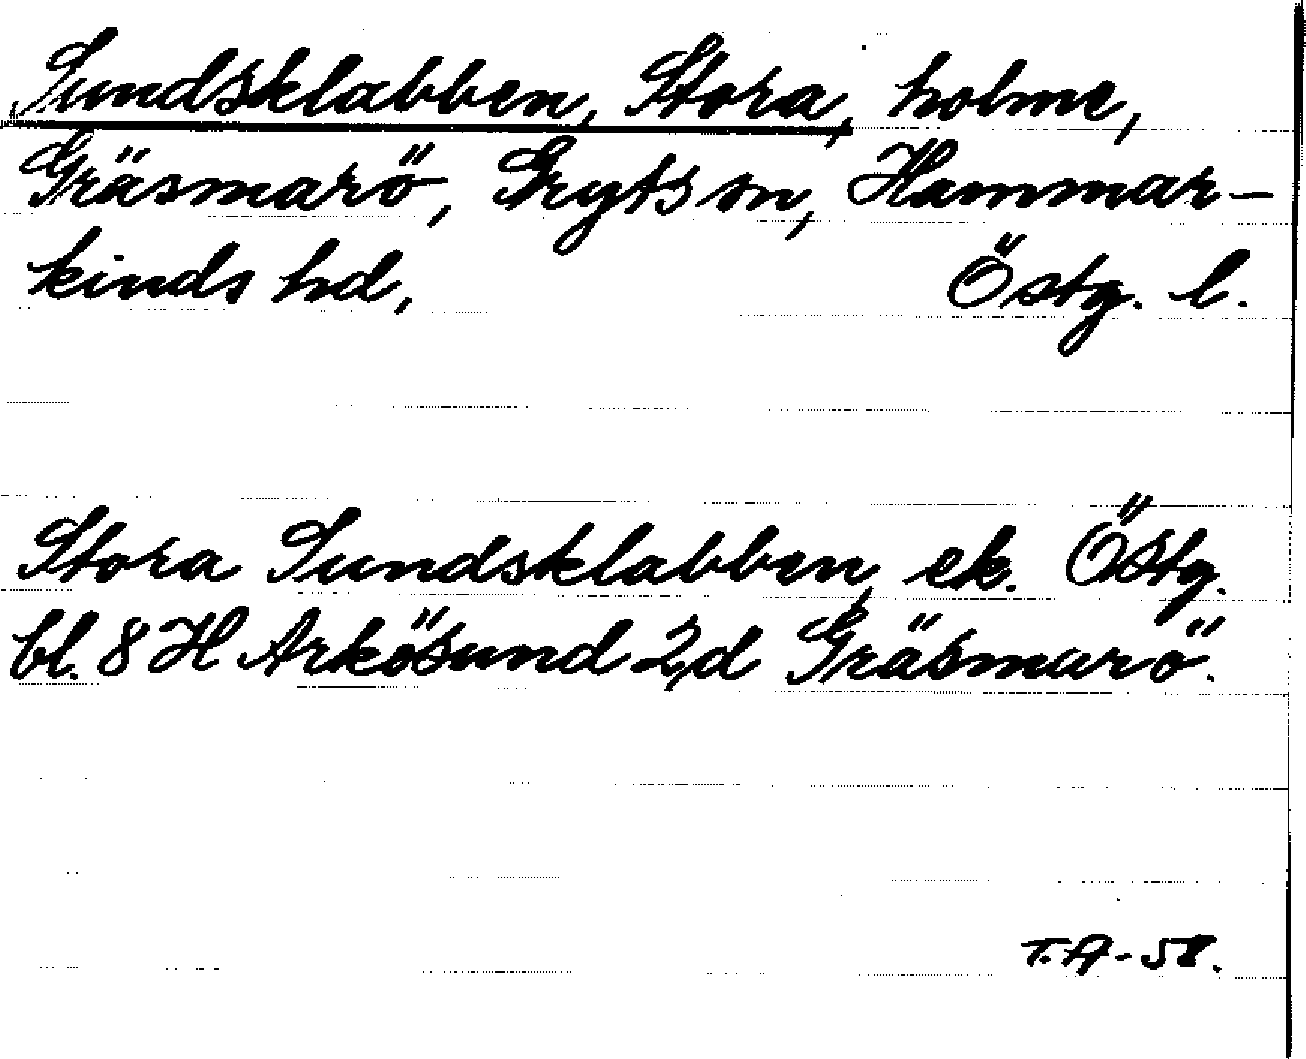 Sundsklabben, Stora, holme,
Gräsmarö, Gryts sn, Hammar-
kinds hd, Östg. l.
Stora Sundsklabben, ek. Östg.
bl. 8 H Arkösund 2,d Gräsmarö.
T.A-58.